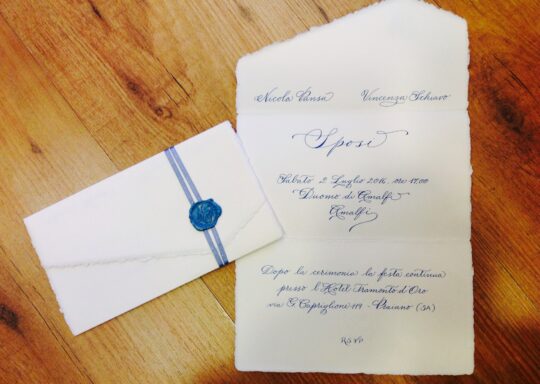 Nicola Pansa Vincenza Schiavo
Sposi
Sabato 2 Luglio 2016, ore 17,00
"Duomo di Amalfi"
Amalfi
Dopo la cerimonia la festa continua
presso l'Hotel Tramonto d'Oro
via G. Capriglione 119 - Praiano (SA)
RSVP